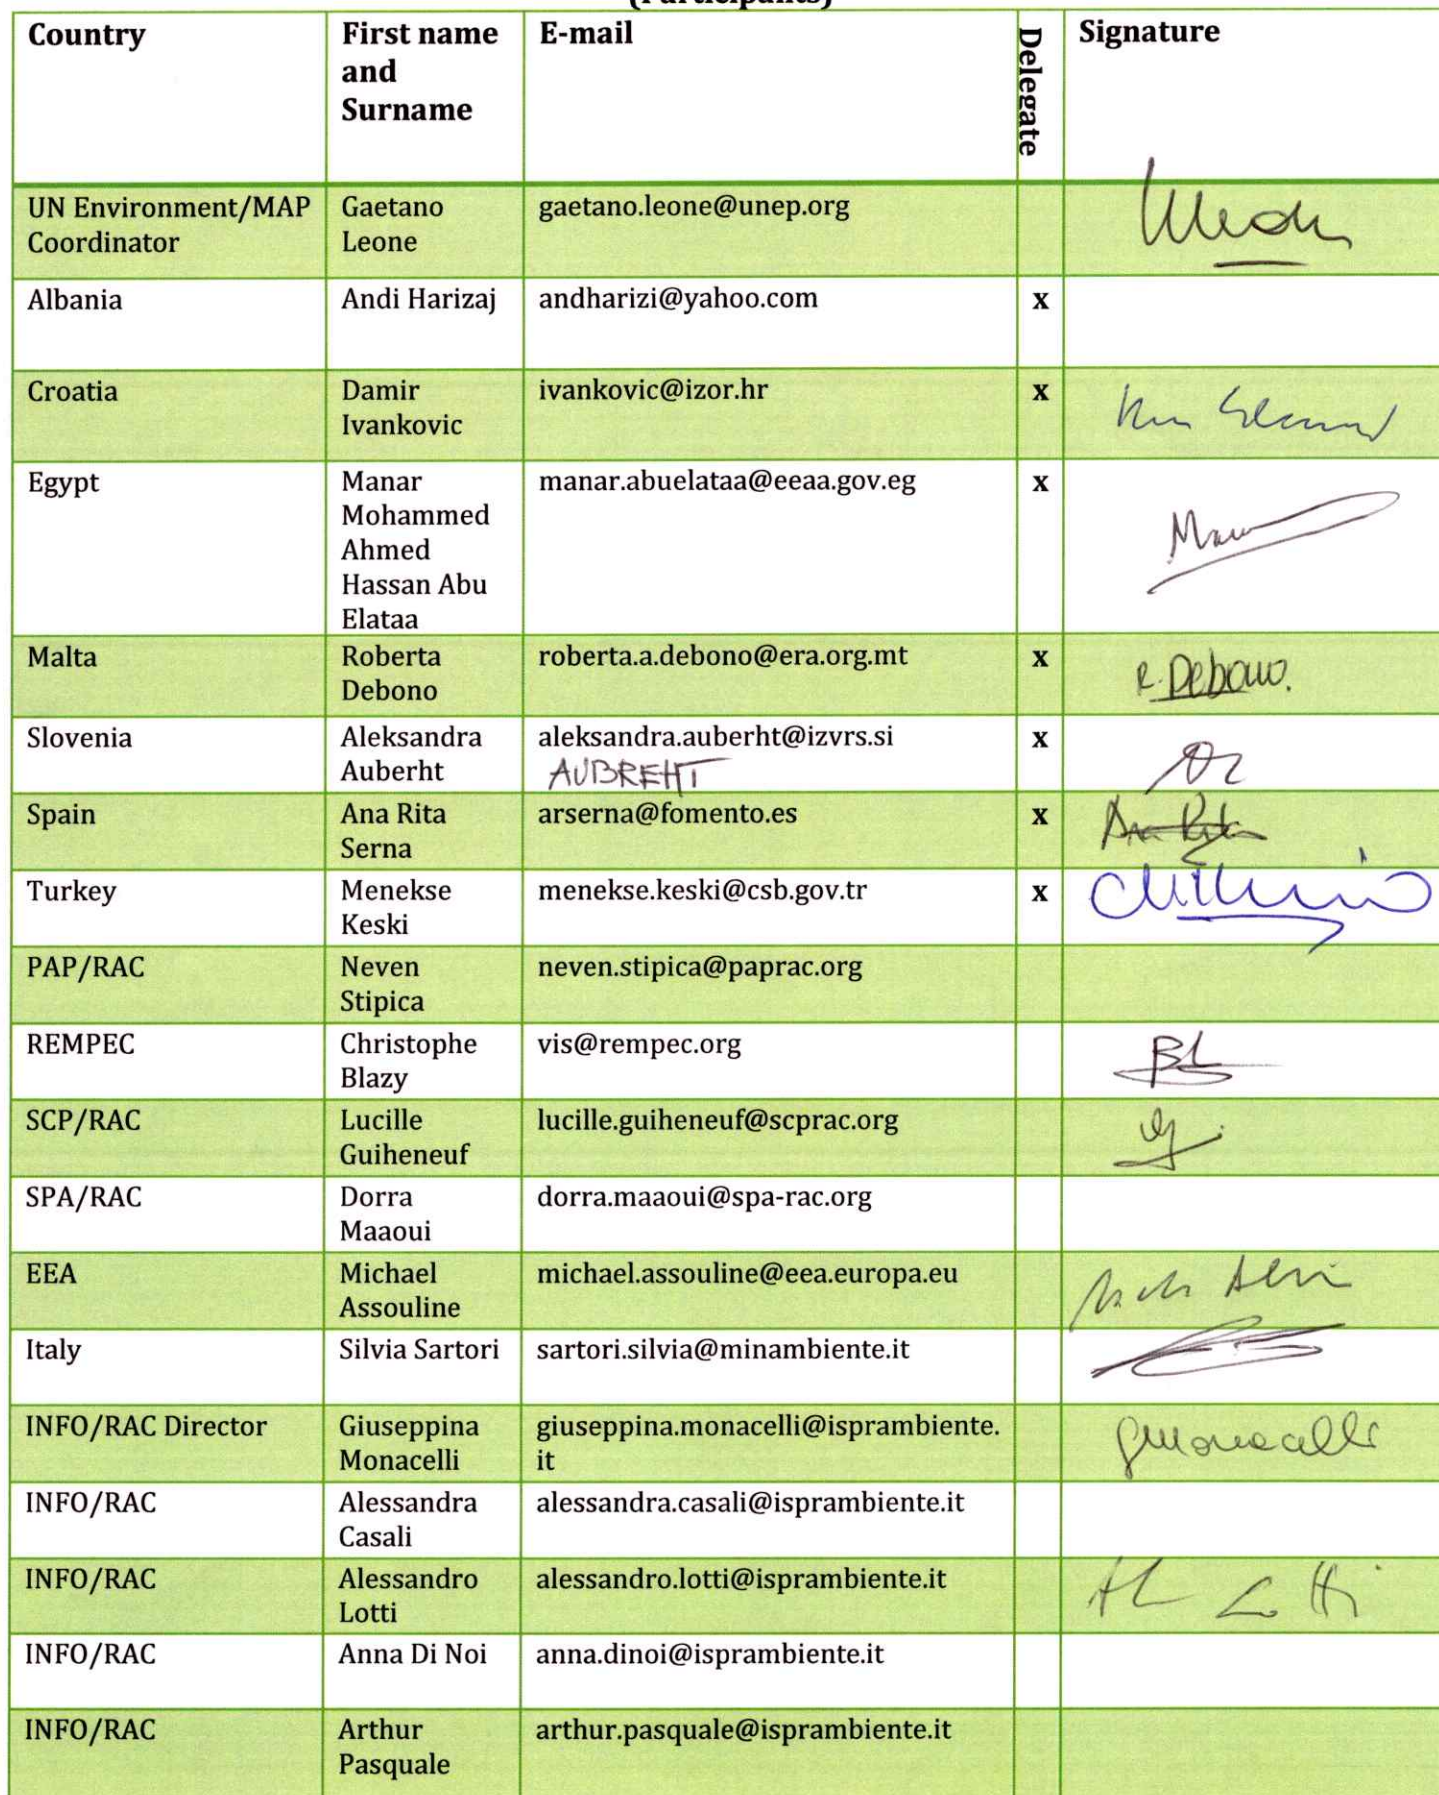 (Participants)
Country
First name
and
Surname
E-mail
Delegate
Signature
UN Environment/MAP
Coordinator
Gaetano
Leone
gaetano.leone@unep.org
Albania
Andi Harizaj
andharizi@yahoo.com
x
Croatia
Damir
Ivankovic
ivankovic@izor.hr
x
Egypt
Manar
Mohammed
Ahmed
Hassan Abu
Elataa
manar.abuelataa@eeaa.gov.eg
x
Malta
Roberta
Debono
roberta.a.debono@era.org.mt
x
R. Debono.
Slovenia
Aleksandra
Auberht
aleksandra.auberht@izvrs.si
AUBREHT
x
Spain
Ana Rita
Serna
arserna@fomento.es
x
Ana Rita
Turkey
Menekse
Keski
menekse.keski@csb.gov.tr
x
PAP/RAC
Neven
Stipica
neven.stipica@paprac.org
REMPEC
Christophe
Blazy
vis@rempec.org
SCP/RAC
Lucille
Guiheneuf
lucille.guiheneuf@scprac.org
SPA/RAC
Dorra
Maaoui
dorra.maaoui@spa-rac.org
EEA
Michael
Assouline
michael.assouline@eea.europa.eu
Italy
Silvia Sartori
sartori.silvia@minambiente.it
INFO/RAC Director
Giuseppina
Monacelli
giuseppina.monacelli@isprambiente.
it
GMonacelli
INFO/RAC
Alessandra
Casali
alessandra.casali@isprambiente.it
INFO/RAC
Alessandro
Lotti
alessandro.lotti@isprambiente.it
INFO/RAC
Anna Di Noi
anna.dinoi@isprambiente.it
INFO/RAC
Arthur
Pasquale
arthur.pasquale@isprambiente.it